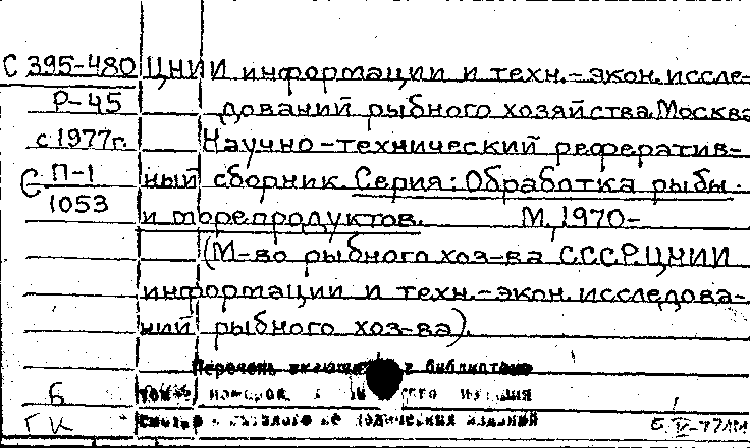 С 395-480 ЦНИИ информации и техн.-экон. иссле-
Р-45 дований рыбного хозяйства. Москва
с 1977г. Научно-технический рефератив-
С П-1 ный сборник. Серия: Обработка рыбы
1053 и морепродуктов. М, 1970-
(М-во рыбного хоз-ва СССР. ЦНИИ
информации и техн.-экон. исследова-
ний рыбного хоз-ва).
Перечень в библиотеке
Б номеров, издания
ГК смотри в каталоге периодических изданий